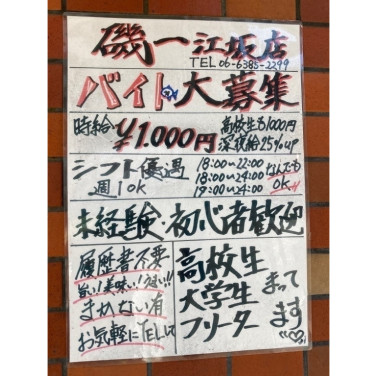 磯一江坂店
TEL 06-6385-2299
バイト大募集
時給 ¥1.000円
高校生も1000円
深夜給25%up
シフト優遇
週1ok
18:00〜22:00
18:00〜24:00
19:00〜24:00
なんでも
OK!!
未経験・初心者歓迎
履歴書不要
旨い!美味い!うまい!!
まかない有
お気軽にTELして
高校生
大学生
フリーター
まって
ます